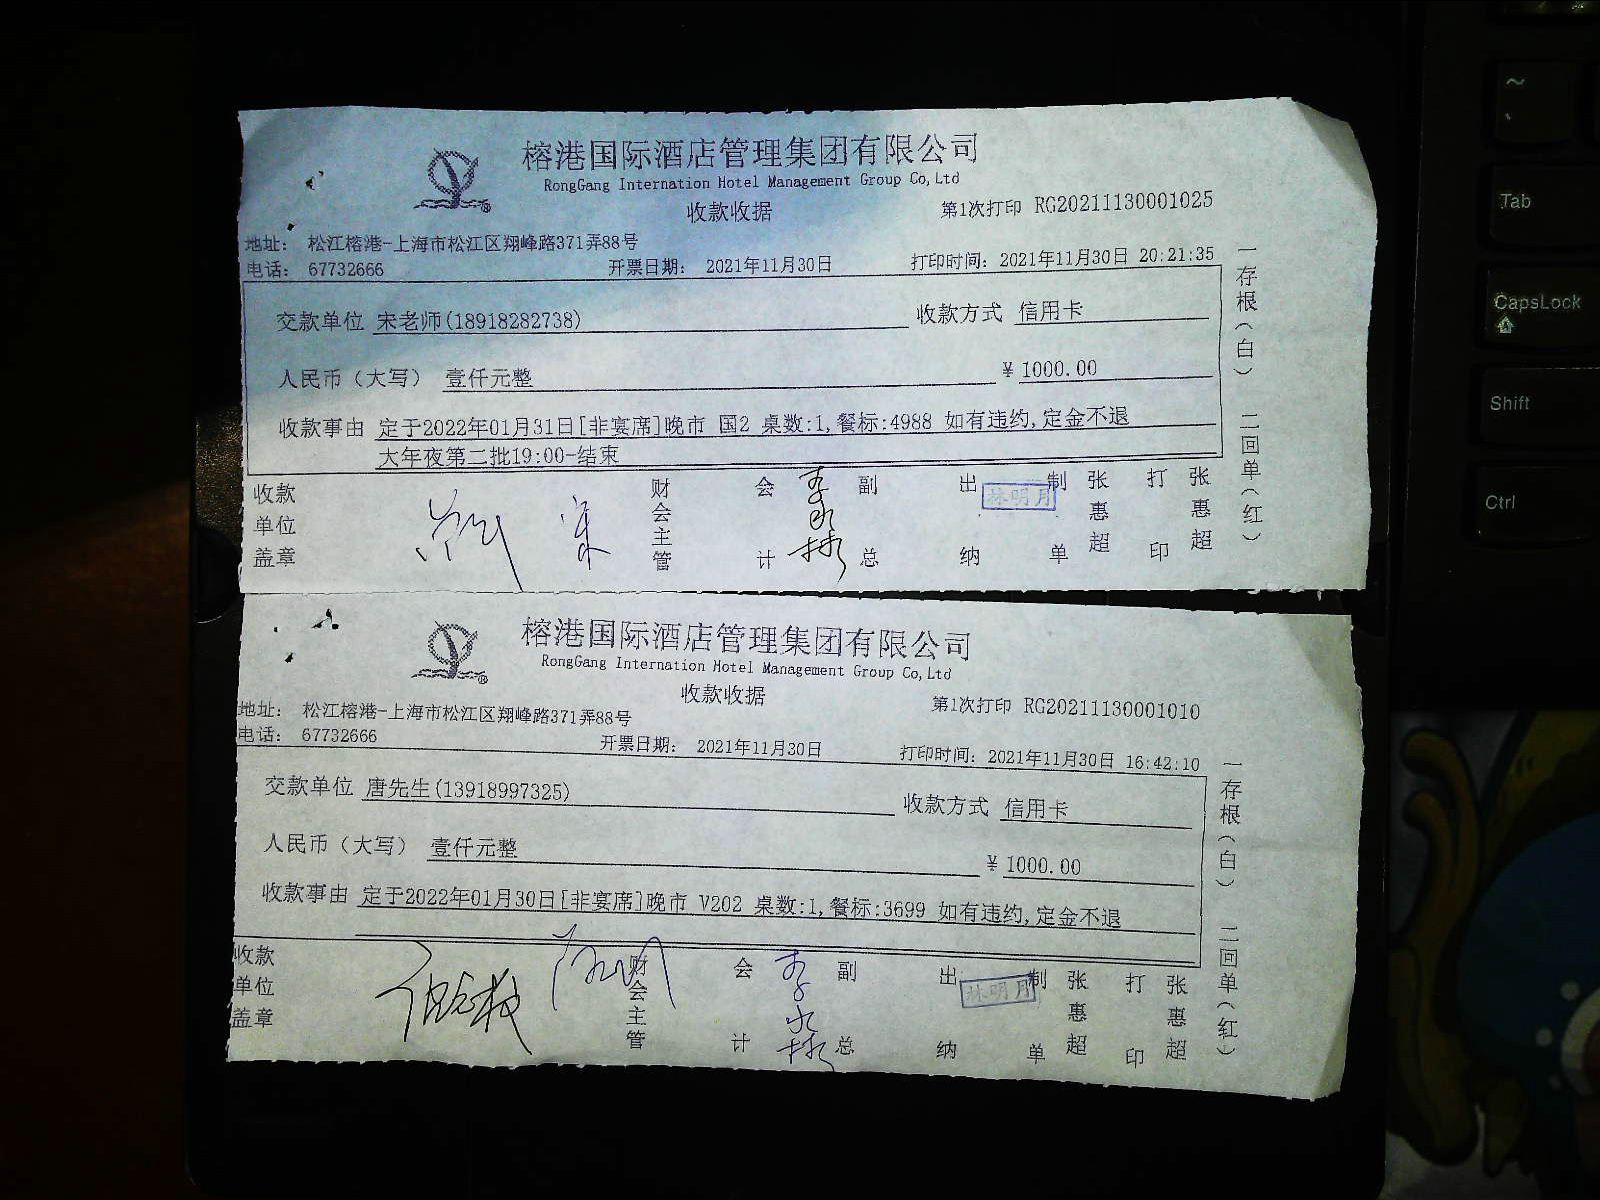 榕港国际酒店管理集团有限公司
RongGang Internation Hotel Management Group Co,Ltd
收款收据
第1次打印 RG20211130001025
地址： 松江榕港-上海市松江区翔峰路371弄88号
电话： 67732666
开票日期： 2021年11月30日
打印时间：2021年11月30日 20:21:35
交款单位 宋老师(18918282738)
收款方式 信用卡
人民币（大写） 壹仟元整
￥1000.00
收款事由 定于2022年01月31日[非宴席]晚市 国2 桌数:1,餐标:4988 如有违约,定金不退
大年夜第二批19:00-结束
收款单位盖章
财会主管
会计
副总
出纳
林明月
制单
张惠超
打印
张惠超
一存根（白） 二回单（红）
榕港国际酒店管理集团有限公司
RongGang Internation Hotel Management Group Co,Ltd
收款收据
第1次打印 RG20211130001010
地址： 松江榕港-上海市松江区翔峰路371弄88号
电话： 67732666
开票日期： 2021年11月30日
打印时间：2021年11月30日 16:42:10
交款单位 唐先生(13918997325)
收款方式 信用卡
人民币（大写） 壹仟元整
￥1000.00
收款事由 定于2022年01月30日[非宴席]晚市 V202 桌数:1,餐标:3699 如有违约,定金不退
收款单位盖章
财会主管
会计
副总
出纳
林明月
制单
张惠超
打印
张惠超
一存根（白） 二回单（红）
~
Tab
CapsLock
Shift
Ctrl